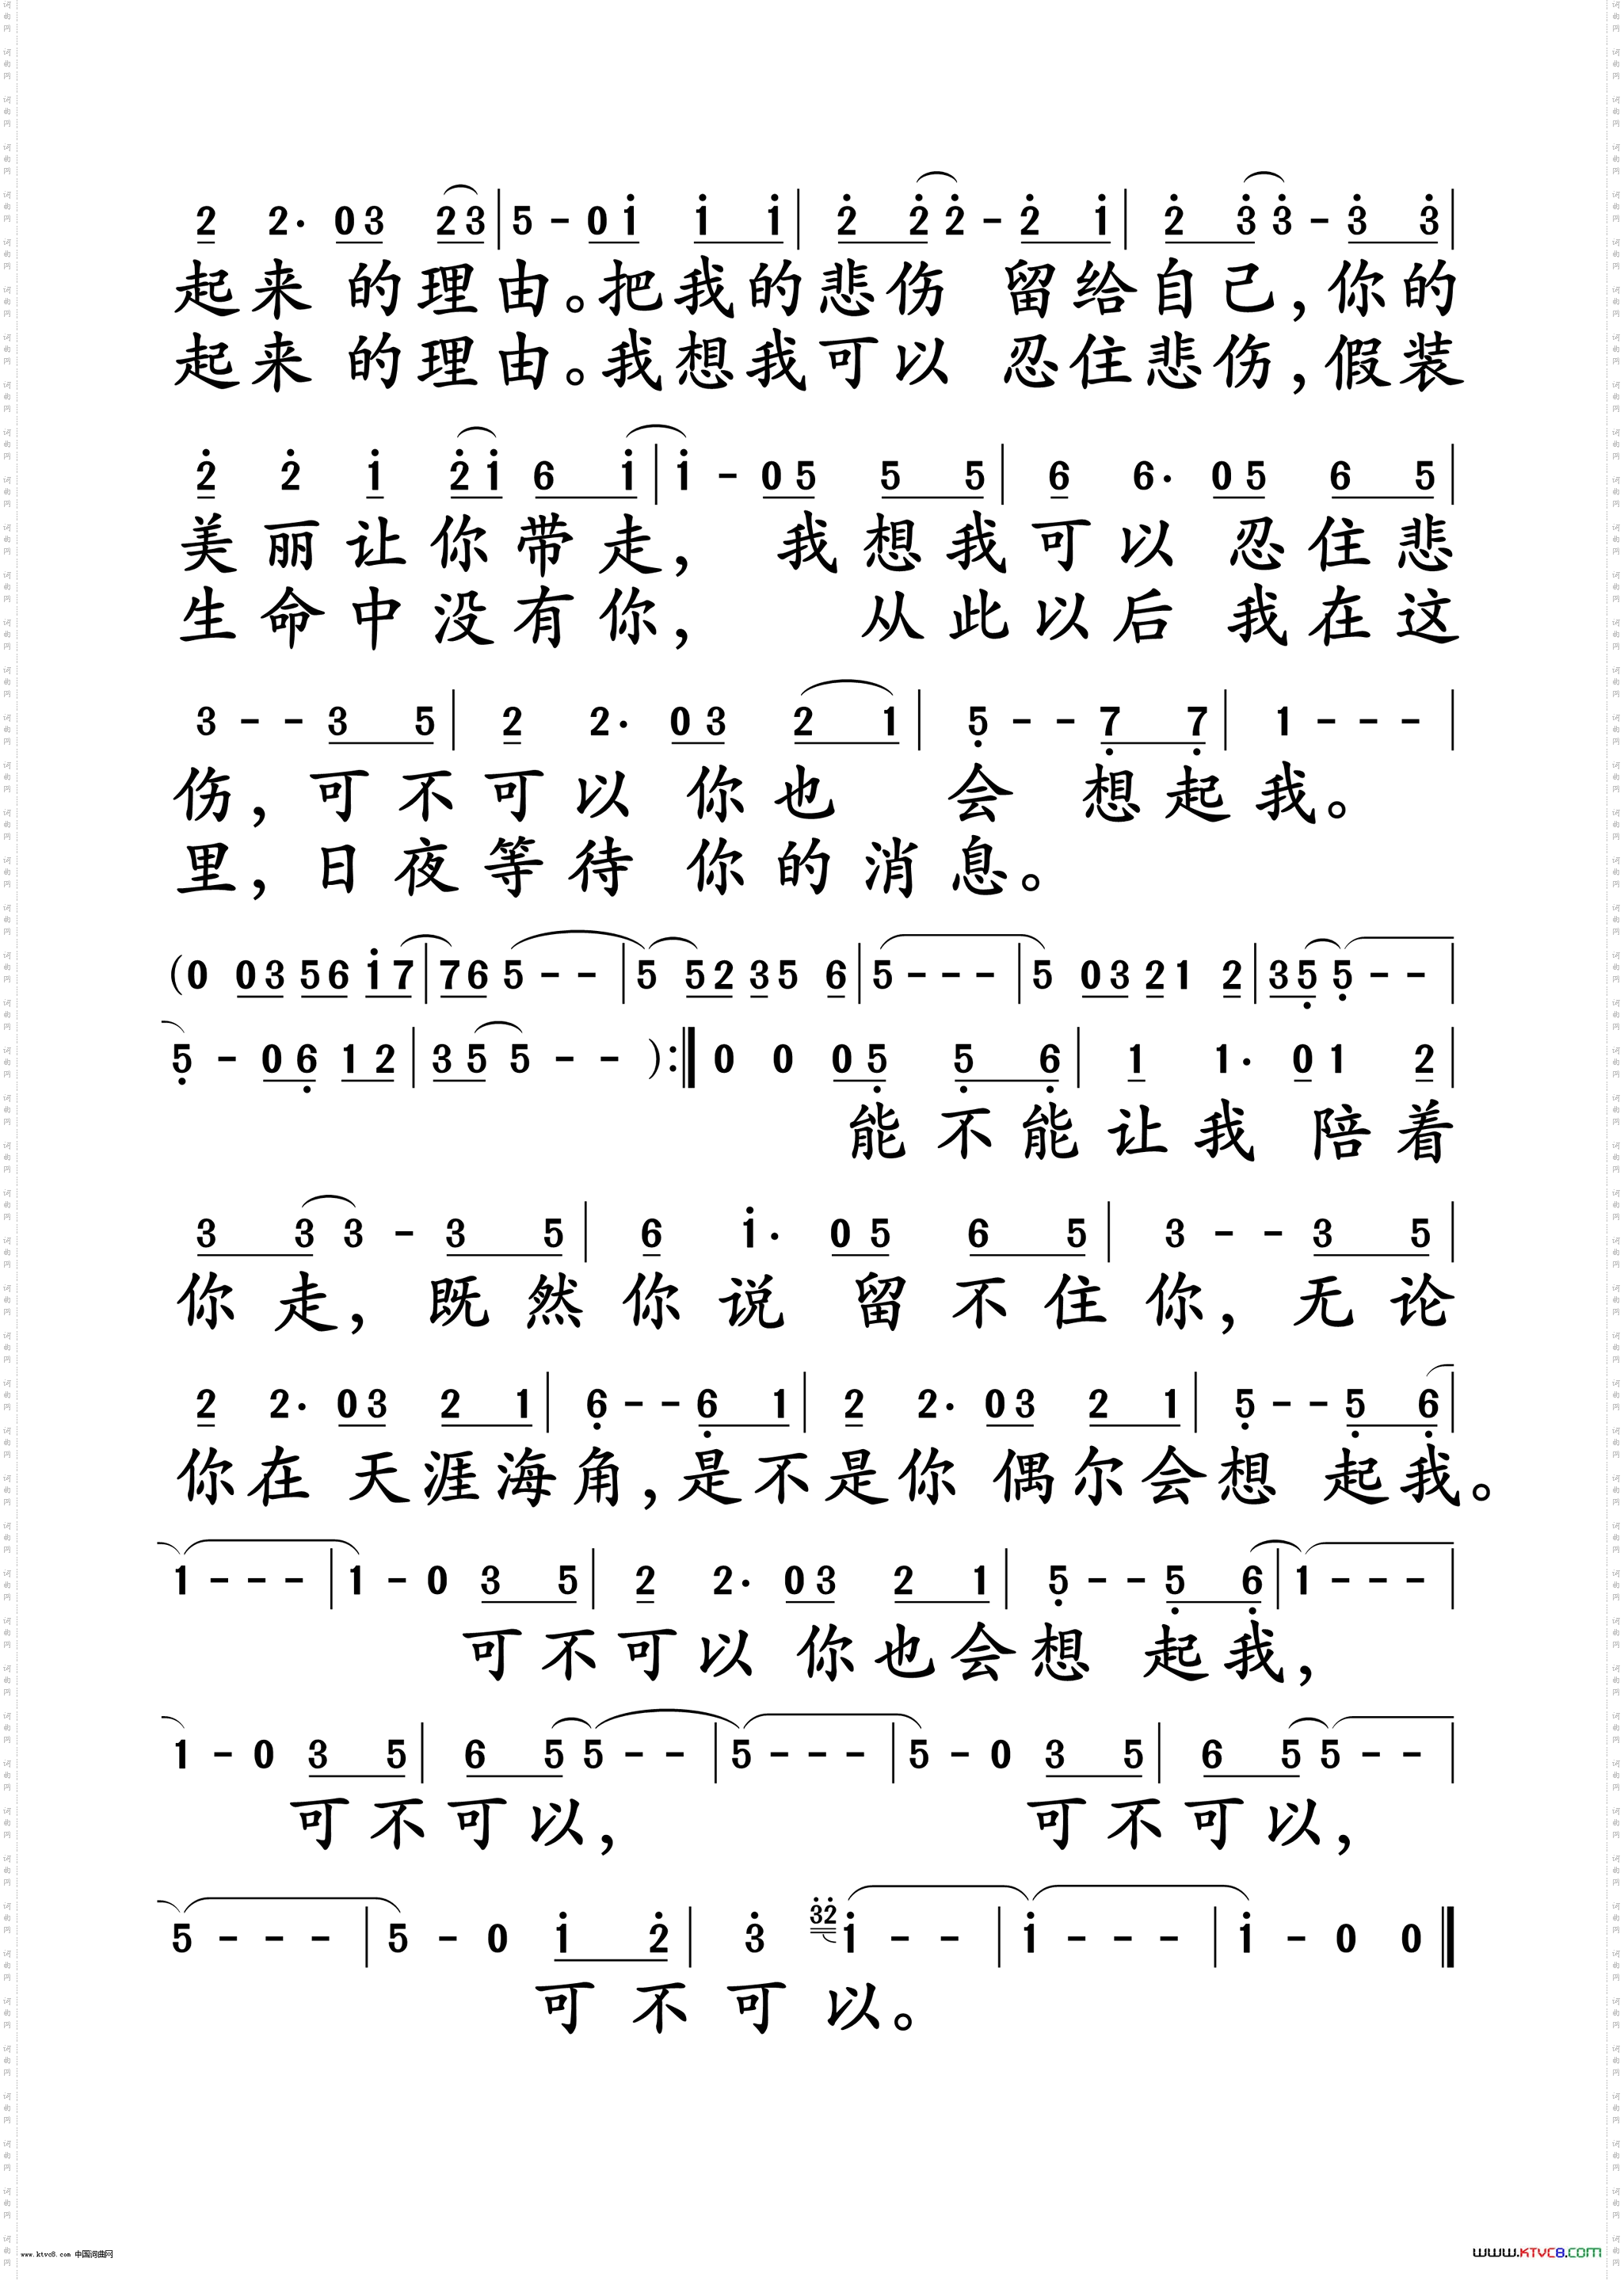 2 2· 0 3 2 3 | 5 - 0 1 1 1 | 2 2 2 - 2 1 | 2 3 3 - 3 3 |
起来 的理由。把我的悲伤 留给自己,你的
起来 的理由。我想我可以 忍住悲伤,假装
2 2 1 2 1 6 1 | 1 - 0 5 5 5 | 6 6· 0 5 6 5 |
美丽让你带走, 我想我可以 忍住悲
生命中没有你, 从此以后 我在这
3 - - 3 5 | 2 2· 0 3 2 1 | 5 - - 7 7 | 1 - - - |
伤,可不可以 你也 会 想起我。
里,日夜等待 你的消息。
(0 0 3 5 6 1 7 | 7 6 5 - - | 5 5 2 3 5 6 | 5 - - - | 5 0 3 2 1 2 | 3 5 5 - - |
5 - 0 6 1 2 | 3 5 5 - - ):‖ 0 0 0 5 5 6 | 1 1· 0 1 2 |
能不能让我 陪着
3 3 3 - 3 5 | 6 1· 0 5 6 5 | 3 - - 3 5 |
你走,既然你说 留不住你,无论
2 2· 0 3 2 1 | 6 - - 6 1 | 2 2· 0 3 2 1 | 5 - - 5 6 |
你在 天涯海角,是不是你 偶尔会想 起我。
1 - - - | 1 - 0 3 5 | 2 2· 0 3 2 1 | 5 - - 5 6 | 1 - - - |
可不可以 你也会想 起我,
1 - 0 3 5 | 6 5 5 - - | 5 - - - | 5 - 0 3 5 | 6 5 5 - - |
可不可以, 可不可以,
5 - - - | 5 - 0 1 2 | 3 32 1 - - | 1 - - - | 1 - 0 0 ‖
可不可以。
www.ktvc8.com 中国词曲网
WWW.KTVC8.COM